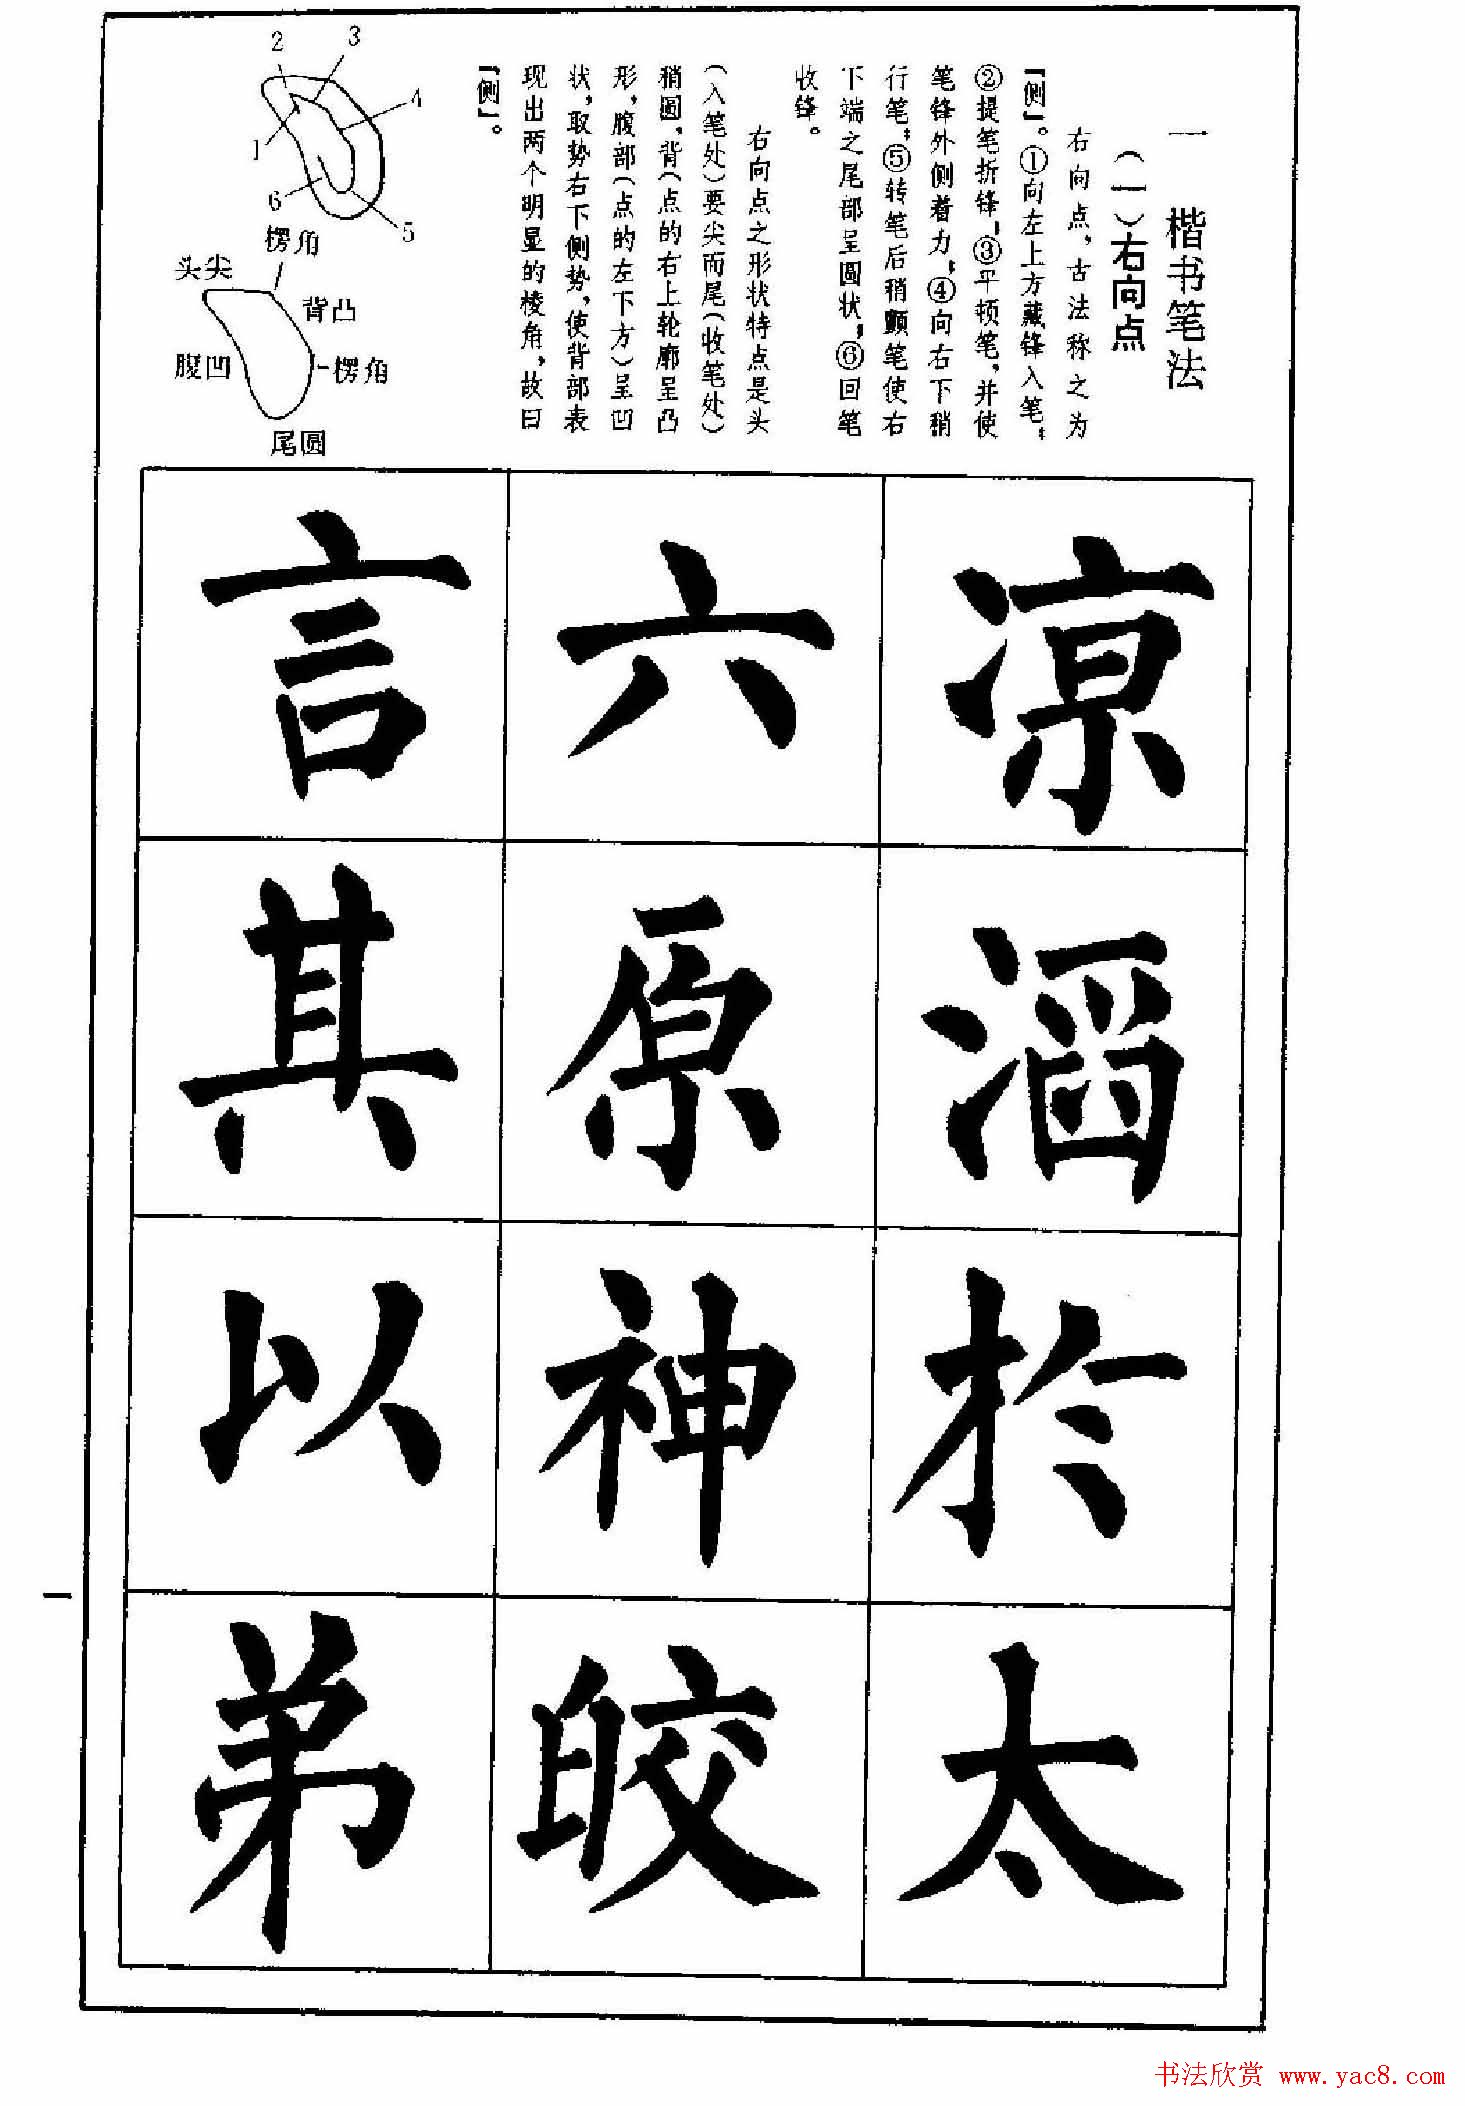 一 楷书笔法
（一）右向点
右向点，古法称之为
「侧」。①向左上方藏锋入笔；
②提笔折锋；③平顿笔，并使
笔锋外侧着力；④向右下稍
行笔；⑤转笔后稍颤笔使右
下端之尾部呈圆状；⑥回笔
收锋。
右向点之形状特点是头
（入笔处）要尖而尾（收笔处）
稍圆，背（点的右上轮廓呈凸
形，腹部（点的左下方）呈凹
状，取势右下侧势，使背部表
现出两个明显的棱角，故曰
「侧」。
2
3
4
1
6
5
楞角
头尖
背凸
腹凹
楞角
尾圆
凉 滔 於 太
六 原 神 皎
言 其 以 弟
一
书法欣赏 www.yac8.com